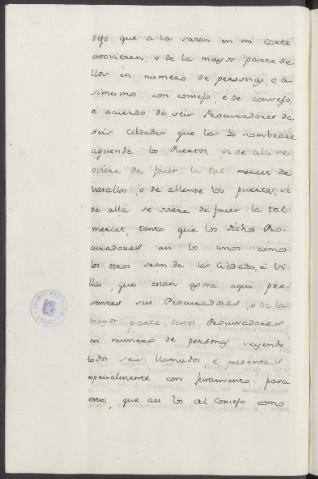 sejo que a la sazon en mi corte
estovieren, o de la mayor parte de
llos en numero de personas, e a
simesmo con consejo, e de consejo,
e acuerdo de seis Procuradores de
seis cibdades que la Yo nombrare
aquende los Puertos, si de allí se
oviere de facer la tal merced de
vasallos, o de allende los puertos, si
de allá se oviere de facer la tal
merced, tanto que los dichos Pro-
curadores asi los unos como
los otros sean de las Cibdades, e Vi
llas, que enviaron aqui, pre-
sentes sus Procuradores, o de la
mayor parte destos Procuradores
en numero de personas seyendo
todos seis llamados e presentes
especialmente con juramento para
esto, que asi los del Consejo como